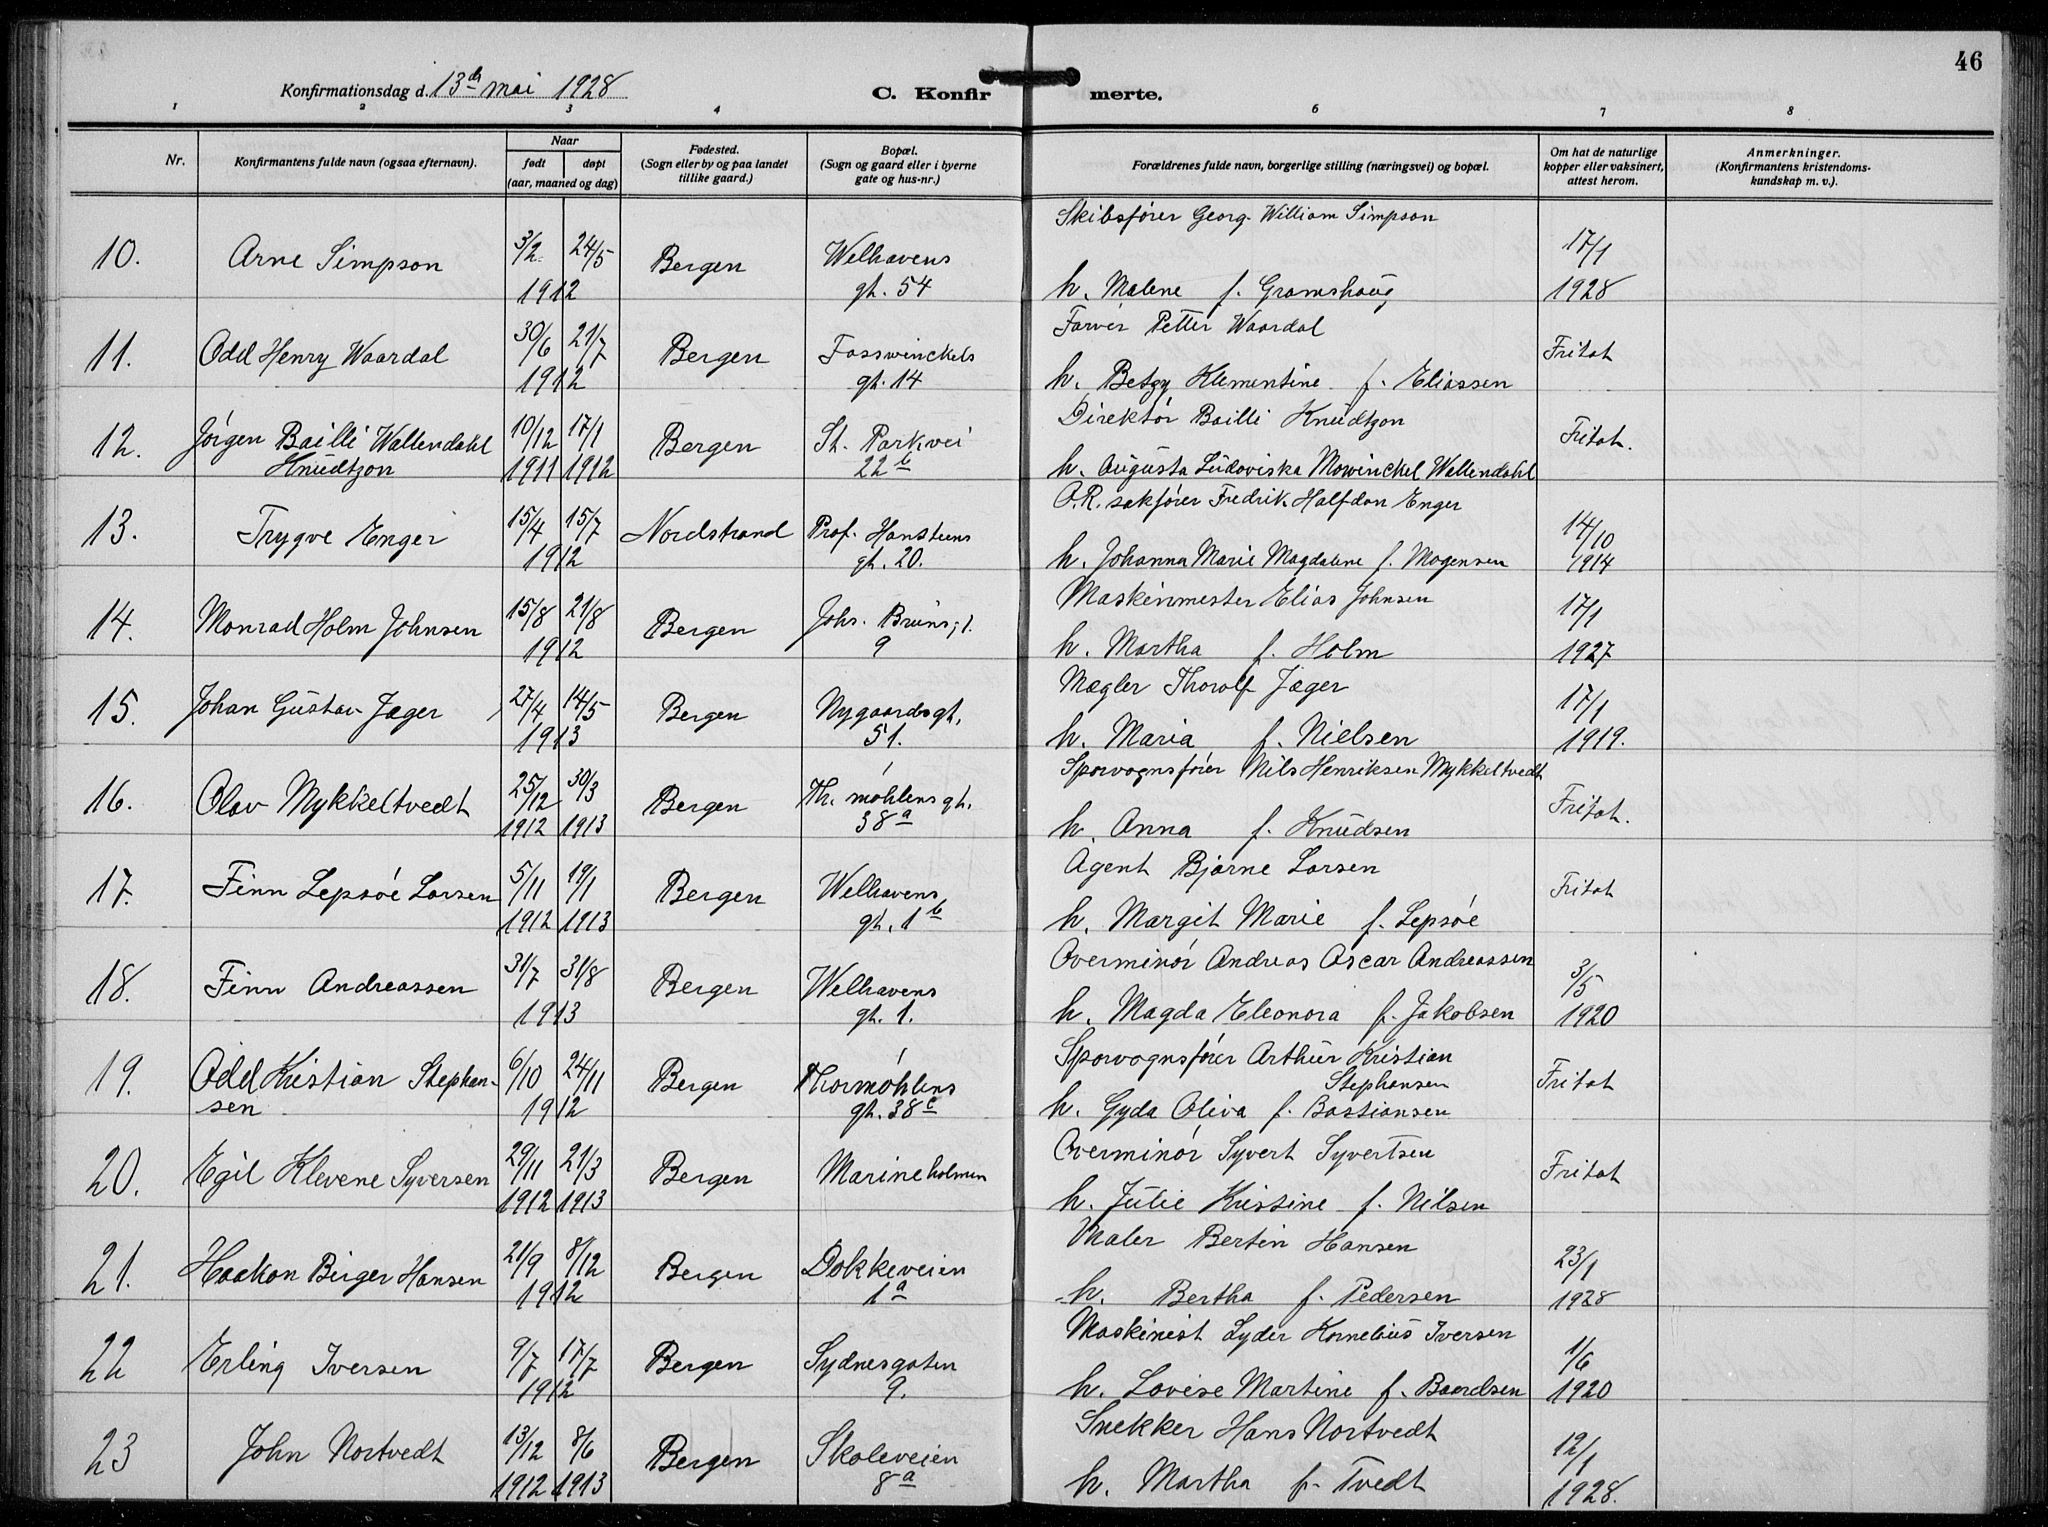 46
Konfirmationsdag d. 13de mai 1928
C. Konfirmerte.
1 2 3 4 6 7 8
Nr. Konfirmantens fulde navn (ogsaa efternavn). Naar født døpt (aar, maaned og dag) Fødested. (Sogn eller by og paa landet tillike gaard.) Bopæl. (Sogn og gaard eller i byerne gate og hus-nr.) Forældrenes fulde navn, borgerlige stilling (næringsvei) og bopæl. Om hat de naturlige kopper eller vaksinert, attest herom. Anmerkninger. (Konfirmantens kristendomskundskap m. v.).
Skibsfører Georg William Simpson
10. Arne Simpson 3/2 24/5 Bergen Welhavens 17/1
1912 gt. 54 h. Malene f. Gramshaug 1928
Farver Petter Waardal
11. Odd Henry Waardal 30/6 21/7 Bergen Fosswinckels Fritat
1912 gt. 14 h. Betzy Klementine f. Eliassen
Direktør Bailli Knudtzon
12. Jörgen Bailli Wallendahl 10/12 17/1 Bergen St. Parkvei Fritat.
Knudtzon 1911 1912 22b h. Augusta Ludoviska Mowinckel Wallendahl
O.R. sakfører Fredrik Halfdan Enger
13. Trygve Enger 15/4 15/7 Nordstrand Prof. Hansteens 14/10
1912 gt. 20. h. Johanna Marie Magdalene f. Mogensen 1914
Maskinmester Elias Johnsen
14. Monrad Holm Johnsen 15/8 21/8 Bergen Johs. Bruns gt. 17/1
1912 9 h. Martha f. Holm 1927
Mægler Thorolf Jæger
15. Johan Gustav Jæger 27/4 14/5 Bergen Nygaardsgt. 17/1
1913 51. h. Maria f. Nielsen 1919.
Sporvognsfører Nils Henriksen Mykkeltvedt
16. Olav Mykkeltvedt 25/12 30/3 Bergen Th. møhlens gt. Fritat.
1912 1913 38a h. Anna f. Knudsen
Agent Bjarne Larsen
17. Finn Lepsöe Larsen 5/11 19/1 Bergen Welhavens Fritat
1912 1913 gt. 1b h. Margit Marie f. Lepsöe
Overminör Andreas Oscar Andreassen
18. Finn Andreassen 31/7 31/8 Bergen Welhavens 3/5
1913 gt. 1. h. Magda Eleonora f. Jakobsen 1920
Sporvognsfører Arthur Kristian
Stephansen
19. Odd Kristian Stephan- 6/10 24/11 Bergen Thormöhlens Fritat
sen 1912 gt. 38c h. Gyda Oliva f. Bastiansen
Overminör Syvert Syvertsen
20. Egil Klevene Syversen 29/11 21/3 Bergen Marineholmen Fritat
1912 1913 h. Julie Kristine f. Nilsen
Maler Bertin Hansen
21. Haakon Birger Hansen 21/9 8/12 Bergen Dokkeveien 23/1
1912 1a h. Bertha f. Pedersen 1928
Maskinist Lyder Kornelius Iversen
22 Erling Iversen 9/7 17/7 Bergen Sydnesgaten 1/6
1912 9. h. Lovise Martine f. Baardsen 1920
Snekker Hans Nortvedt
23 John Nortvedt 13/12 8/6 Bergen Skoleveien 12/1
1912 1913 8a h. Martha f. Tvedt 1928.